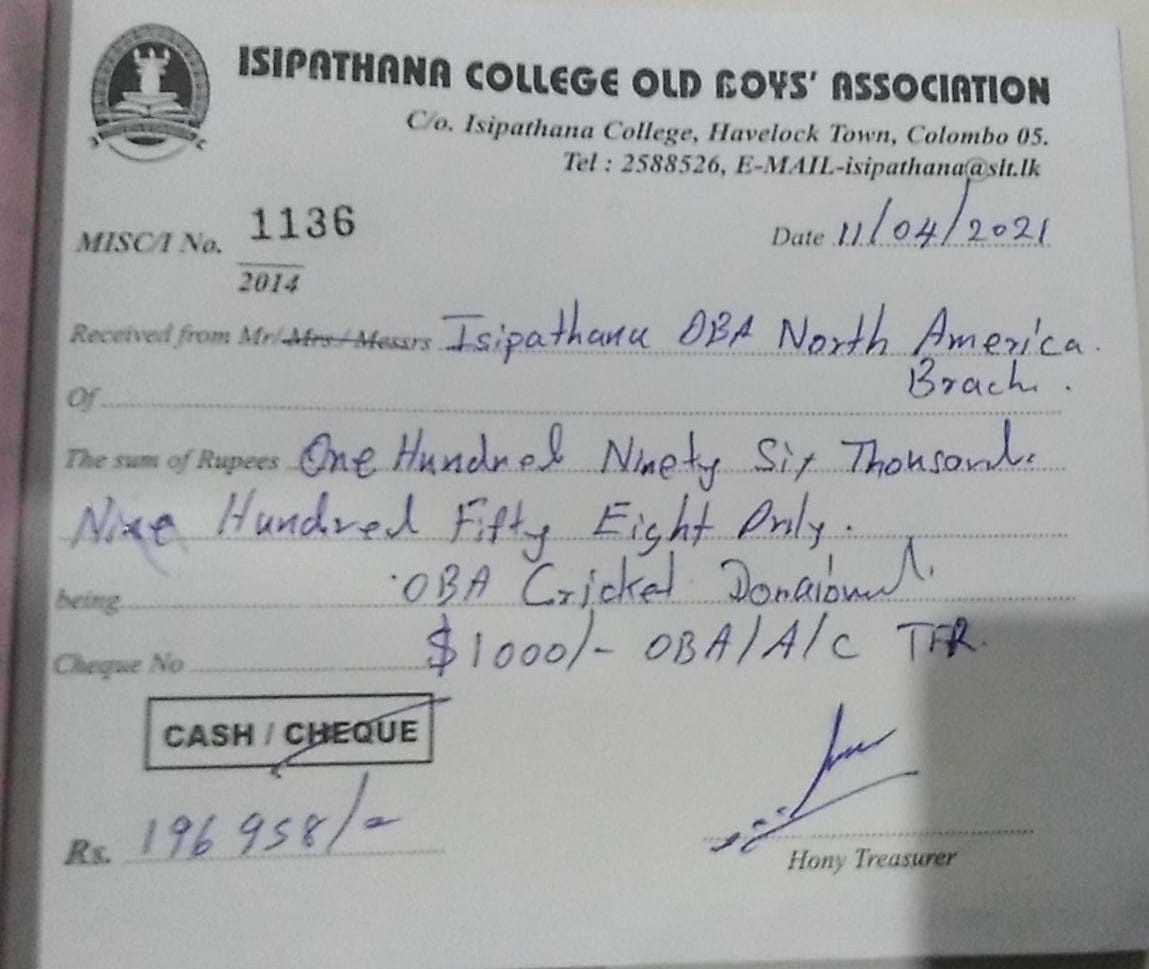 ISIPATHANA COLLEGE OLD BOYS' ASSOCIATION
C/o. Isipathana College, Havelock Town, Colombo 05.
Tel : 2588526, E-MAIL-isipathana@slt.lk
MISC/I No. 1136
2014
Date 11/04/2021
Received from Mr/ Mrs / Messrs Isipathana OBA North America.
Brach.
Of
The sum of Rupees One Hundred Ninety Six Thousand
Nine Hundred Fifty Eight Only.
being OBA Cricket
Cheque No $1000/- OBA/A/C TFR.
CASH / CHEQUE
Rs. 196 958/-
Hony Treasurer